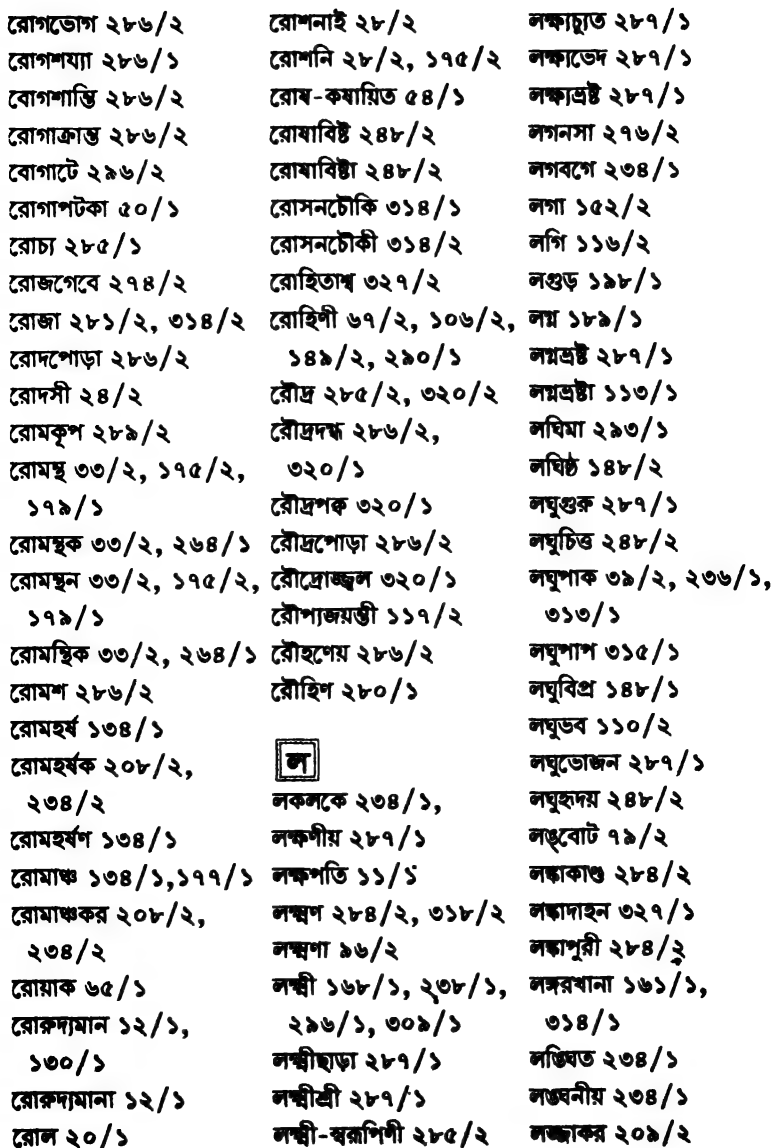 রোগভোগ ২৮৬/২
রোগশয্যা ২৮৬/১
বোগশান্তি ২৮৬/২
রোগাক্রান্ত ২৮৬/২
বোগাটে ২৯৬/২
রোগাপটকা ৫০/১
রোচ্য ২৮৫/১
রোজগেবে ২৭৪/২
রোজা ২৮১/২, ৩১৪/২
রোদপোড়া ২৮৬/২
রোদসী ২৪/২
রোমকূপ ২৮৯/২
রোমন্থ ৩৩/২, ১৭৫/২,
১৭৯/১
রোমন্থক ৩৩/২, ২৬৪/১
রোমন্থন ৩৩/২, ১৭৫/২,
১৭৯/১
রোমন্থিক ৩৩/২, ২৬৪/১
রোমশ ২৮৬/২
রোমহর্ষ ১৩৪/১
রোমহর্ষক ২০৮/২,
২৩৪/২
রোমহর্ষণ ১৩৪/১
রোমাঞ্চ ১৩৪/১,১৭৭/১
রোমাঞ্চকর ২০৮/২,
২৩৪/২
রোয়াক ৬৫/১
রোরুদ্যমান ১২/১,
১৩০/১
রোরুদ্যমানা ১২/১
রোল ২০/১
রোশনাই ২৮/২
রোশনি ২৮/২, ১৭৫/২
রোষ-কষায়িত ৫৪/১
রোষাবিষ্ট ২৪৮/২
রোষাবিষ্টা ২৪৮/২
রোসনচৌকি ৩১৪/১
রোসনচৌকী ৩১৪/২
রোহিতাশ্ব ৩২৭/২
রোহিণী ৬৭/২, ১০৬/২,
১৪৯/২, ২৯০/১
রৌদ্র ২৮৫/২, ৩২০/২
রৌদ্রদগ্ধ ২৮৬/২,
৩২০/১
রৌদ্রপক্ব ৩২০/১
রৌদ্রপোড়া ২৮৬/২
রৌদ্রোজ্জ্বল ৩২০/১
রৌপ্যজয়ন্তী ১১৭/২
রৌহণেয় ২৮৬/২
রৌহিণ ২৮০/১
ল
লকলকে ২৩৪/১,
লক্ষণীয় ২৮৭/১
লক্ষপতি ১১/১
লক্ষ্মণ ২৮৪/২, ৩১৮/২
লক্ষ্মণা ৯৬/২
লক্ষ্মী ১৬৮/১, ২৩৮/১,
২৯৬/১, ৩০৯/১
লক্ষ্মীছাড়া ২৮৭/১
লক্ষ্মীশ্রী ২৮৭/১
লক্ষ্মী-স্বরূপিণী ২৮৫/২
লক্ষ্যচ্যুত ২৮৭/১
লক্ষ্যভেদ ২৮৭/১
লক্ষ্যভ্রষ্ট ২৮৭/১
লগনসা ২৭৬/২
লগবগে ২৩৪/১
লগা ১৫২/২
লগি ১১৬/২
লগুড় ১৯৮/১
লগ্ন ১৮৯/১
লগ্নভ্রষ্ট ২৮৭/১
লগ্নভ্রষ্টা ১১৩/১
লঘিমা ২৯৩/১
লঘিষ্ঠ ১৪৮/২
লঘুগুরু ২৮৭/১
লঘুচিত্ত ২৪৮/২
লঘুপাক ৩৯/২, ২৩৬/১,
৩১৩/১
লঘুপাপ ৩১৫/১
লঘুবিপ্র ১৪৮/১
লঘুভব ১১০/২
লঘুভোজন ২৮৭/১
লঘুহৃদয় ২৪৮/২
লঙ্‌বোট ৭৯/২
লঙ্কাকাণ্ড ২৮৪/২
লঙ্কাদাহন ৩২৭/১
লঙ্কাপুরী ২৮৪/২
লঙ্গরখানা ১৬১/১,
৩১৪/১
লঙ্ঘিত ২৩৪/১
লঙ্ঘনীয় ২৩৪/১
লজ্জাকব ২০৯/২